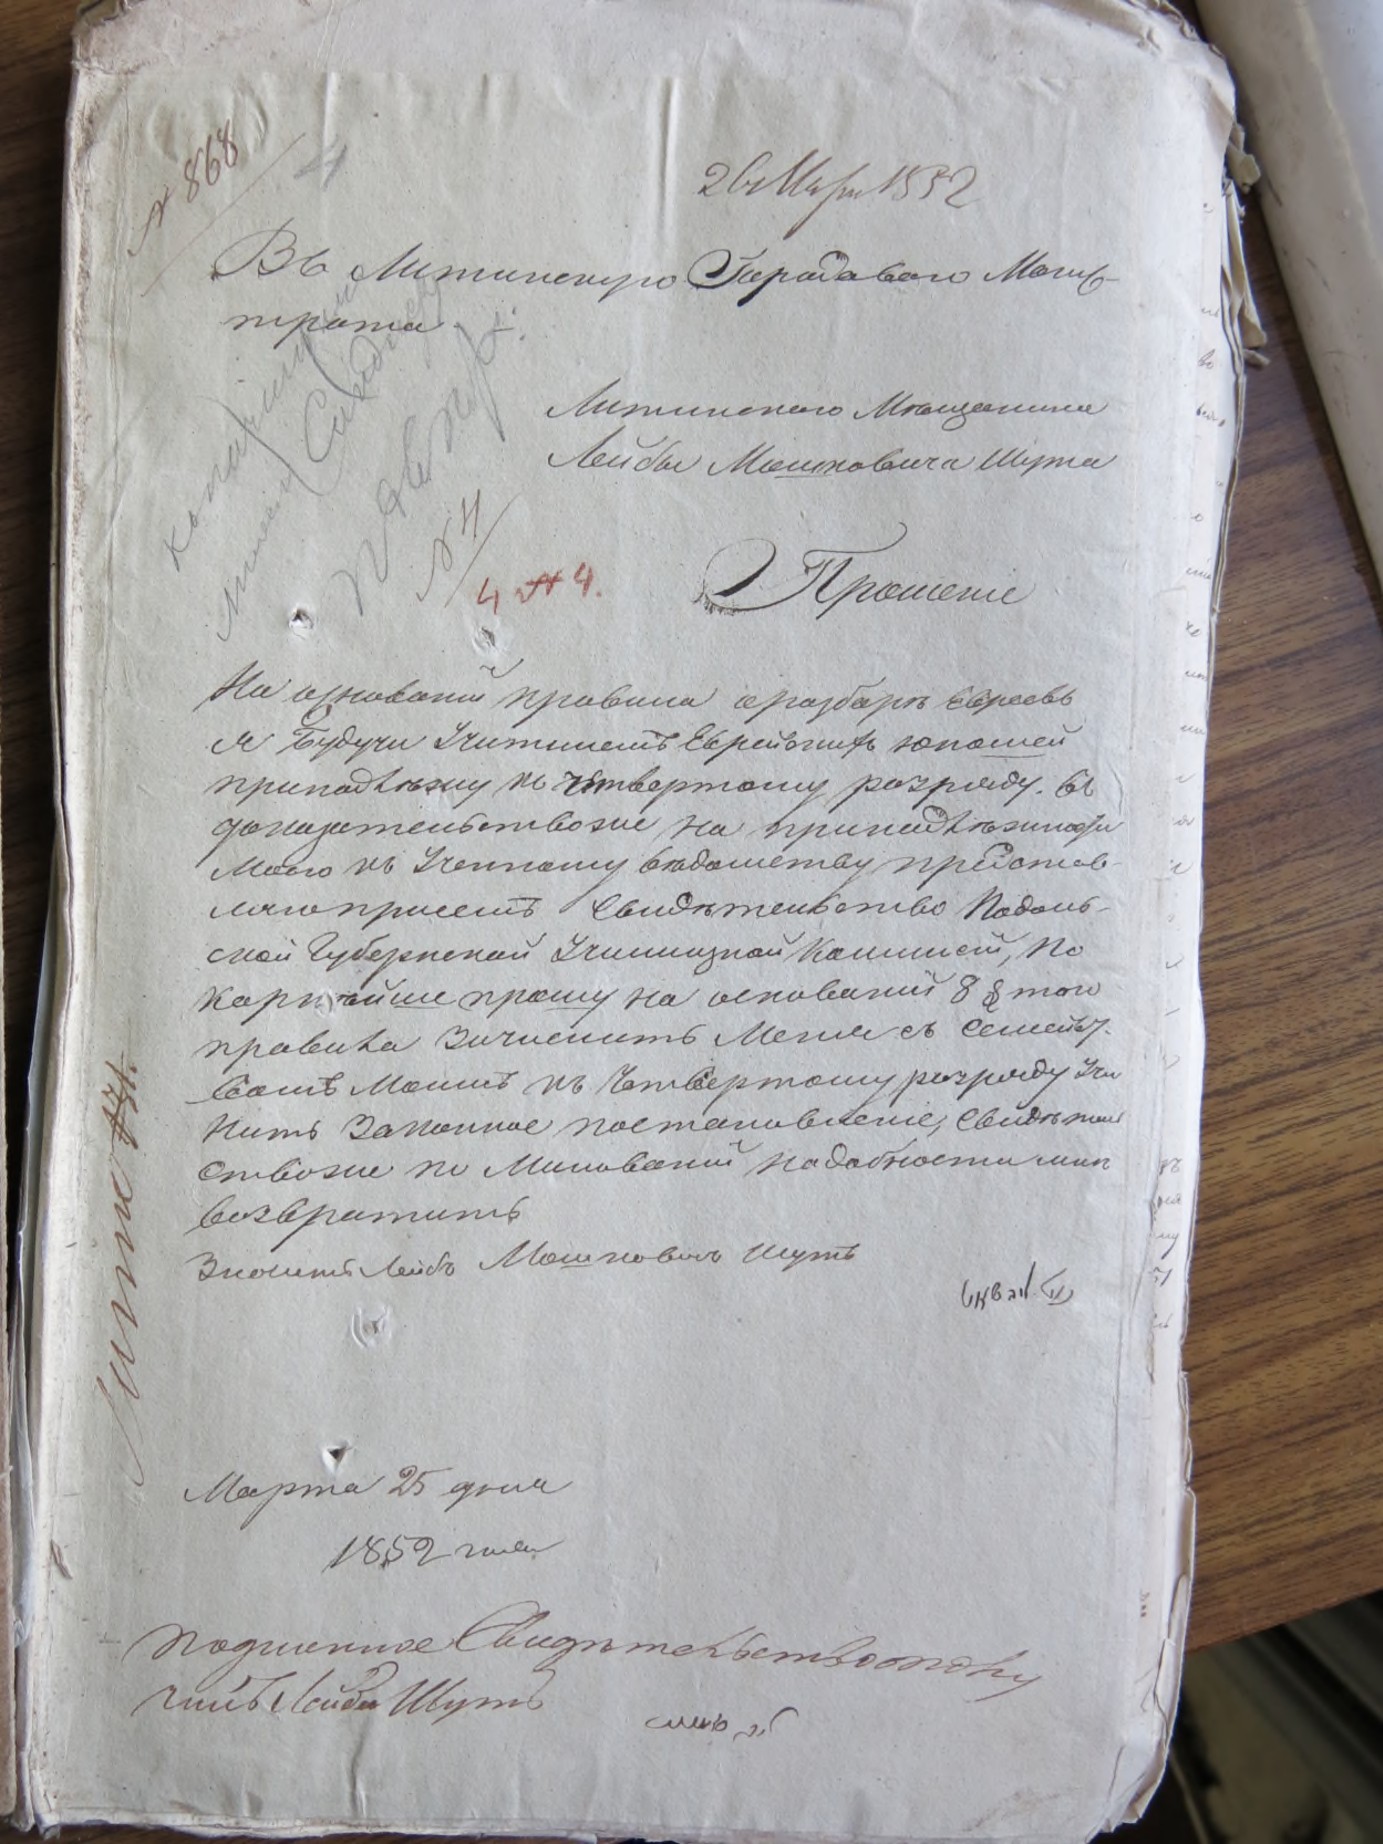 № 868
4
26 Марта 1852
Въ Литинскую Городоваго Магис-
трата
Литинскаго Мещанина
Лейбы Мошковича Шута
№ 11
4 № 4.
Прошеніе
На основаній правила о разборѣ Евреевъ
я Будучи Учителемъ Еврейскихъ юношей
принадлѣжу къ Четвертому розряду. Въ
доказательствоже на принадлѣжность
Моего къ Ученному вѣдомству представ-
ляя присемъ Свидѣтельство Подоль-
ской Губернской Училищной Комиссіи, По
корнѣйше прошу на основаній 8 § того
правила Зачислить Меня съ Семейст-
вомъ Моимъ къ Четвертому розряду Учи
нить Законное постановленіе, Свидѣтель
ствоже по Минованій надобности мнѣ
возвратить
Лейбъ Мошковичъ Шутъ
Марта 25 дня
1852 года
Подлинное Свидѣтельство полу
чилъ Лейба Шутъ